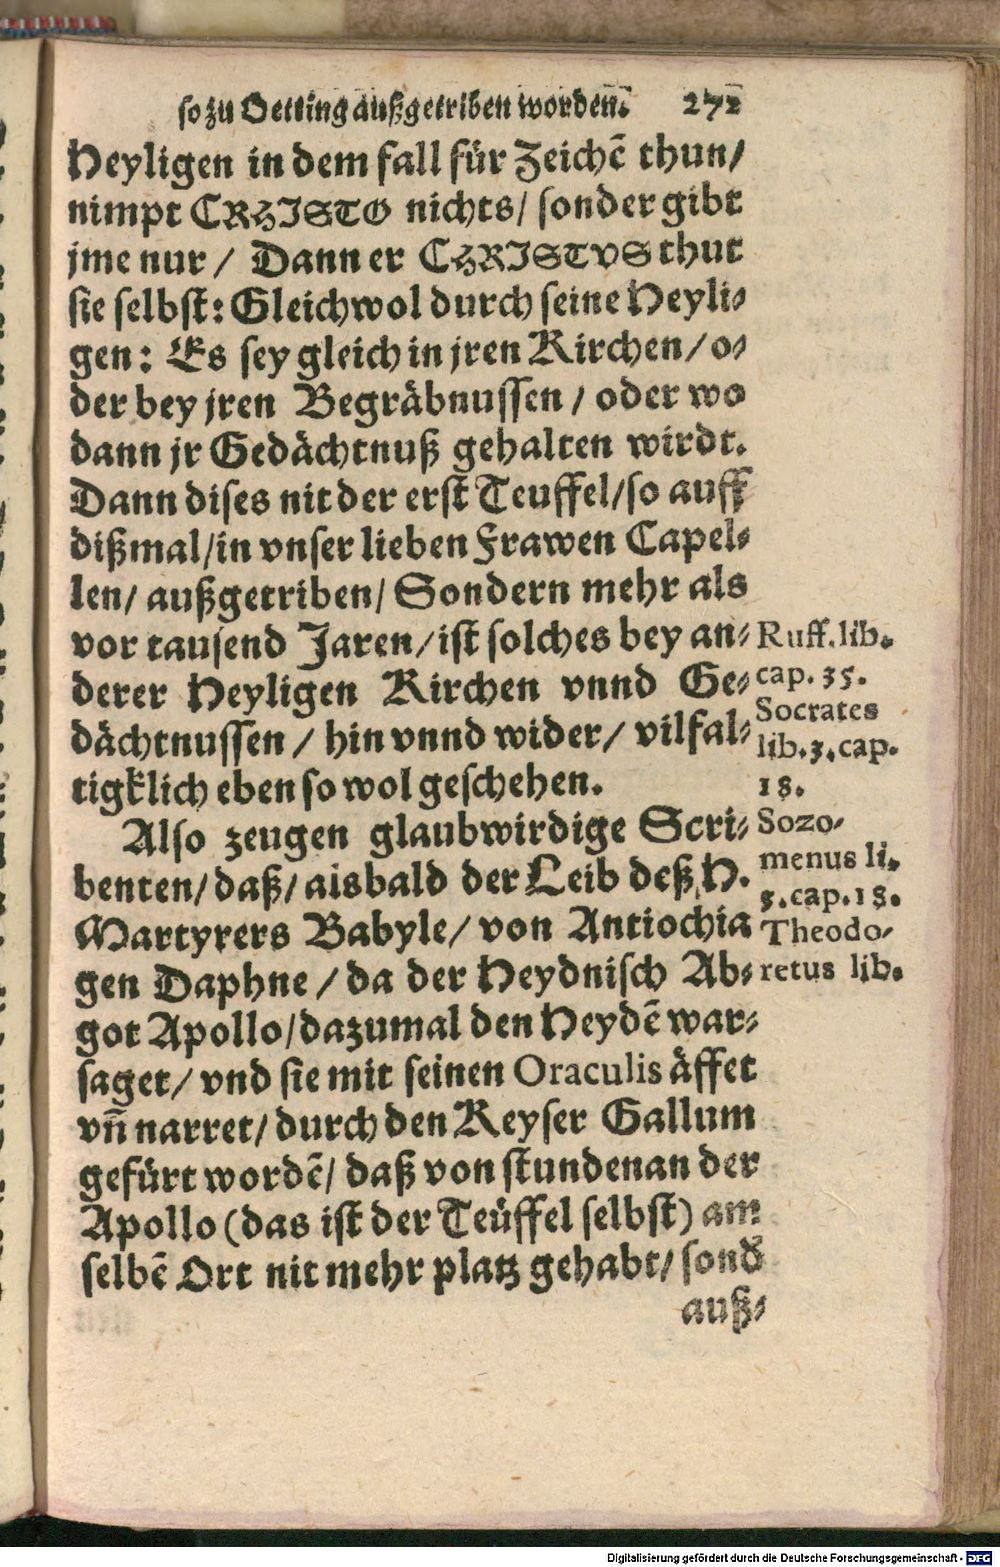 so zu Oetting außgetriben worden̄. 272
Heyligen in dem fall für Zeichẽ thun/
nimpt CRHISTO nichts/ sonder gibt
jme nur / Dann er CHRISTVS thut
sie selbst: Gleichwol durch seine Heyli-
gen: Es sey gleich in jren Kirchen/ o-
der bey jren Begräbnussen / oder wo
dann jr Gedächtnuß gehalten wirdt.
Dann dises nit der erst Teuffel/ so auff
dißmal/ in vnser lieben Frawen Capel-
len/ außgetriben/ Sondern mehr als
vor tausend Jaren/ ist solches bey an-
derer Heyligen Kirchen vnnd Ge-
dächtnussen / hin vnnd wider/ vilfal-
tigklich eben so wol geschehen.
Also zeugen glaubwirdige Scri-
benten/ daß/ alsbald der Leib deß H.
Martyrers Babyle/ von Antiochia
gen Daphne / da der Heydnisch Ab-
got Apollo/ dazumal den Heydẽ war-
saget/ vnd sie mit seinen Oraculis äffet
vñ narret/ durch den Keyser Gallum
gefürt wordẽ/ daß von stundenan der
Apollo (das ist der Teüffel selbst) am
selbẽ Ort nit mehr platz gehabt/ sond̃
auß-
Ruff. lib.
cap. 35.
Socrates
lib. 3. cap.
18.
Sozo-
menus li.
5. cap. 18.
Theodo-
retus lib.
Digitalisierung gefördert durch die Deutsche Forschungsgemeinschaft - DFG